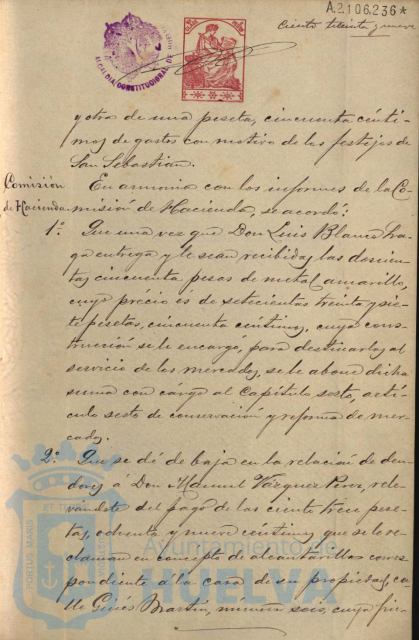 A.2106.236*
Ciento treinta y nueve
ALCALDIA CONSTITUCIONAL DE
y otra de una peseta, cincuenta cénti-
mos de gastos con motivo de los festejos de
San Sebastian.
Comisión
de Hacienda.
En armonia con los informes de la Co-
misión de Hacienda, se acordó:
1º. Que una vez que Don Luis Blanco haga
entrega y le sean recibidas las doscien-
tas cincuenta pesas de metal amarillo,
cuyo précio es de setecientas treinta y sie-
te pesetas, cincuenta céntimos, cuya cons-
trucción se le encargó, para destinarlas al
servicio de los mercados, se le abone dicha
suma con cargo al Capítulo sesto, artí-
culo sesto de conservación y reforma de mer-
cados.
2º. Que se dé de baja en la relación de deu-
dores á Don Manuel Vázquez relo-
vándole del pago de las ciento tres pese-
tas, ochenta y nueve céntimos, que se le re-
claman en concepto de alcantarillas corres-
pondiente á la casa de su propiedad, ca-
lle Ginés Martín, número seis, cuya fin-
PORTUS MARIS
Ayuntamiento de
HUELVA